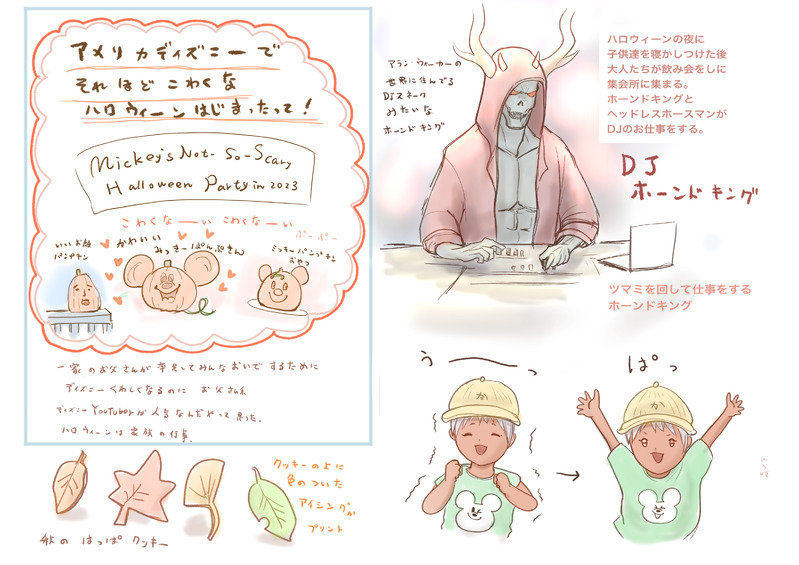 アメリカディズニーで
それほどこわくな
ハロウィーンはじまったって!
Mickey's Not-So-Scary
Halloween Party in 2023
こわくなーい こわくなーい
ぷーぷー
いいお顔
パンプキン
かわいい
みっきーぱんぷきん
ミッキーパンプキン
おやつ
一家のお父さんが率先してみんなおいでするために
ディズニーくわしくなるのに お父さん系
ディズニーYouTuberが人気なんだやって思った。
ハロウィーンは家族の行事。
秋の はっぱ クッキー
クッキーの上に
色のついた
アイシングが
プリント
アラン・ウォーカーの
世界に住んでる
DJスネーク
みたいな
ホーンドキング
ハロウィーンの夜に
子供達を寝かしつけた後
大人たちが飲み会をしに
集会所に集まる。
ホーンドキングと
ヘッドレスホースマンが
DJのお仕事をする。
DJ
ホーンドキング
ツマミを回して仕事をする
ホーンドキング
うーっ
ぱっ
か
か